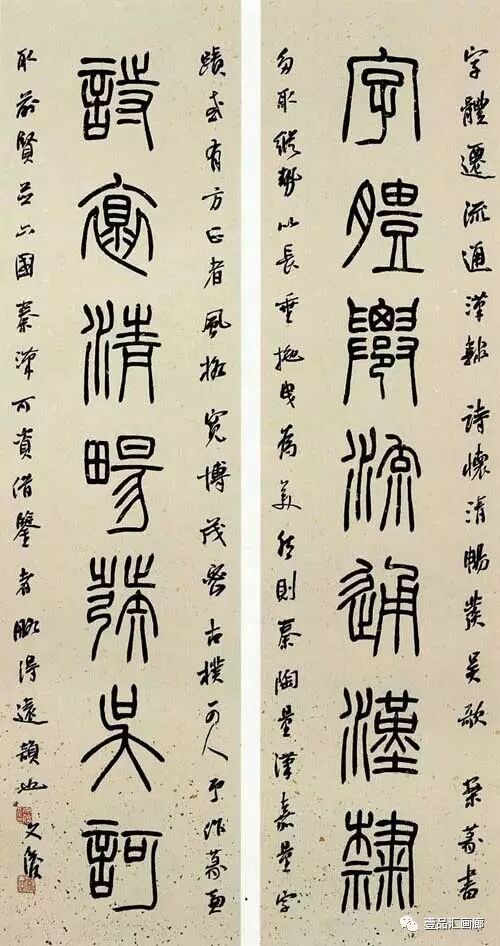 字體遷流通漢隸 詩懷清暢發吳歌 書
字體遷流通漢隸
取縱勢以長垂拖曳為美 然則秦陶量漢嘉量字
蹟或有方正者風格寬博茂密古樸可人 予作篆
詩懷清暢發吳歌
取前賢並六國秦漢可資借鑒者略得遠韻也 文
壹品汇画廊